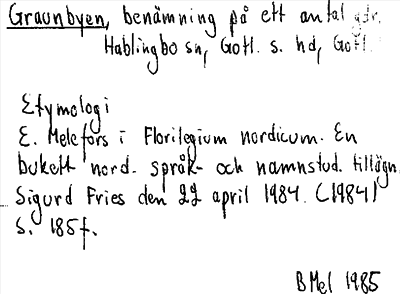 Graunbyen, benämning på ett antal gdr,
Hablingbo sn, Gotl. s. hd, Gotl.
Etymologi
E. Melefors i Florilegium nordicum. En
bukett nord. språk- och namnstud. tillägn.
Sigurd Fries den 22 april 1984. (1984)
s. 185f.
BMel 1985